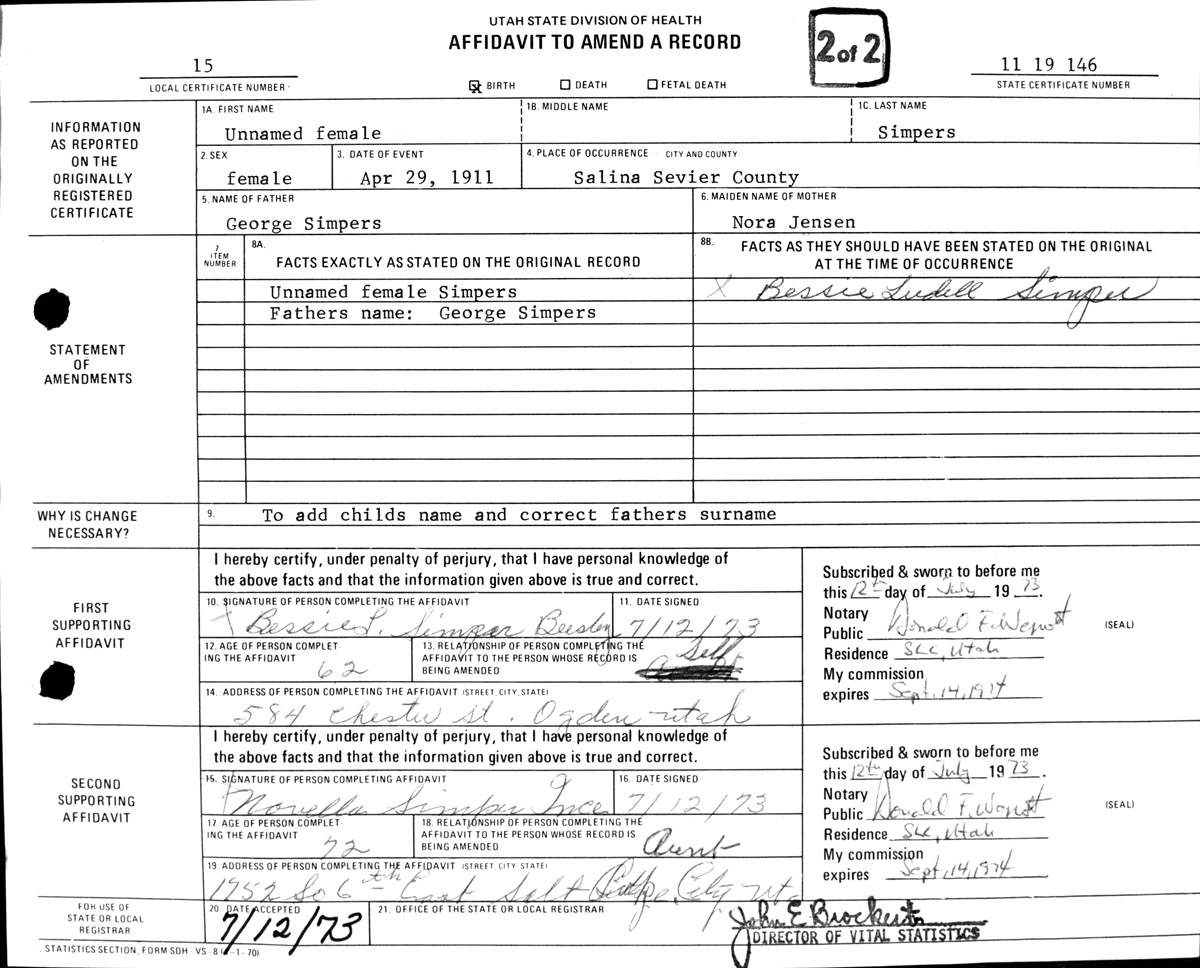 UTAH STATE DIVISION OF HEALTH
AFFIDAVIT TO AMEND A RECORD
2 of 2
15
LOCAL CERTIFICATE NUMBER
BIRTH DEATH FETAL DEATH
11 19 146
STATE CERTIFICATE NUMBER
INFORMATION
AS REPORTED
ON THE
ORIGINALLY
REGISTERED
CERTIFICATE
1A. FIRST NAME 1B. MIDDLE NAME 1C. LAST NAME
Unnamed female Simpers
2. SEX 3. DATE OF EVENT 4. PLACE OF OCCURRENCE CITY AND COUNTY
female Apr 29, 1911 Salina Sevier County
5. NAME OF FATHER 6. MAIDEN NAME OF MOTHER
George Simpers Nora Jensen
STATEMENT
OF
AMENDMENTS
7
ITEM
NUMBER
8A.
FACTS EXACTLY AS STATED ON THE ORIGINAL RECORD
8B. FACTS AS THEY SHOULD HAVE BEEN STATED ON THE ORIGINAL
AT THE TIME OF OCCURRENCE
Unnamed female Simpers X Bessie Ludell Simper
Fathers name: George Simpers
WHY IS CHANGE
NECESSARY?
9. To add childs name and correct fathers surname
FIRST
SUPPORTING
AFFIDAVIT
I hereby certify, under penalty of perjury, that I have personal knowledge of
the above facts and that the information given above is true and correct.
10. SIGNATURE OF PERSON COMPLETING THE AFFIDAVIT 11. DATE SIGNED
X Bessie L. Simper Beesley 7/12/73
12. AGE OF PERSON COMPLET
ING THE AFFIDAVIT
62
13. RELATIONSHIP OF PERSON COMPLETING THE
AFFIDAVIT TO THE PERSON WHOSE RECORD IS
BEING AMENDED
Self
14. ADDRESS OF PERSON COMPLETING THE AFFIDAVIT (STREET, CITY, STATE)
584 Chester St. Ogden Utah
Subscribed & sworn to before me
this 12th day of July 19 73.
Notary
Public Donald F. Wepust
Residence SLC, Utah
My commission
expires Sept. 14, 1974
(SEAL)
SECOND
SUPPORTING
AFFIDAVIT
I hereby certify, under penalty of perjury, that I have personal knowledge of
the above facts and that the information given above is true and correct.
15. SIGNATURE OF PERSON COMPLETING AFFIDAVIT 16. DATE SIGNED
Novella Simper Ince 7/12/73
17. AGE OF PERSON COMPLET
ING THE AFFIDAVIT
72
18. RELATIONSHIP OF PERSON COMPLETING THE
AFFIDAVIT TO THE PERSON WHOSE RECORD IS
BEING AMENDED
Aunt
19. ADDRESS OF PERSON COMPLETING THE AFFIDAVIT (STREET, CITY, STATE)
1952 So 6th East Salt City Ut
Subscribed & sworn to before me
this 12th day of July 19 73.
Notary
Public Donald F. Wepust
Residence SLC, Utah
My commission
expires Sept, 14, 1974
(SEAL)
FOR USE OF
STATE OR LOCAL
REGISTRAR
20. DATE ACCEPTED
7/12/73
21. OFFICE OF THE STATE OR LOCAL REGISTRAR
John E Brockert
DIRECTOR OF VITAL STATISTICS
STATISTICS SECTION, FORM SDH - VS - 8 -1-70)